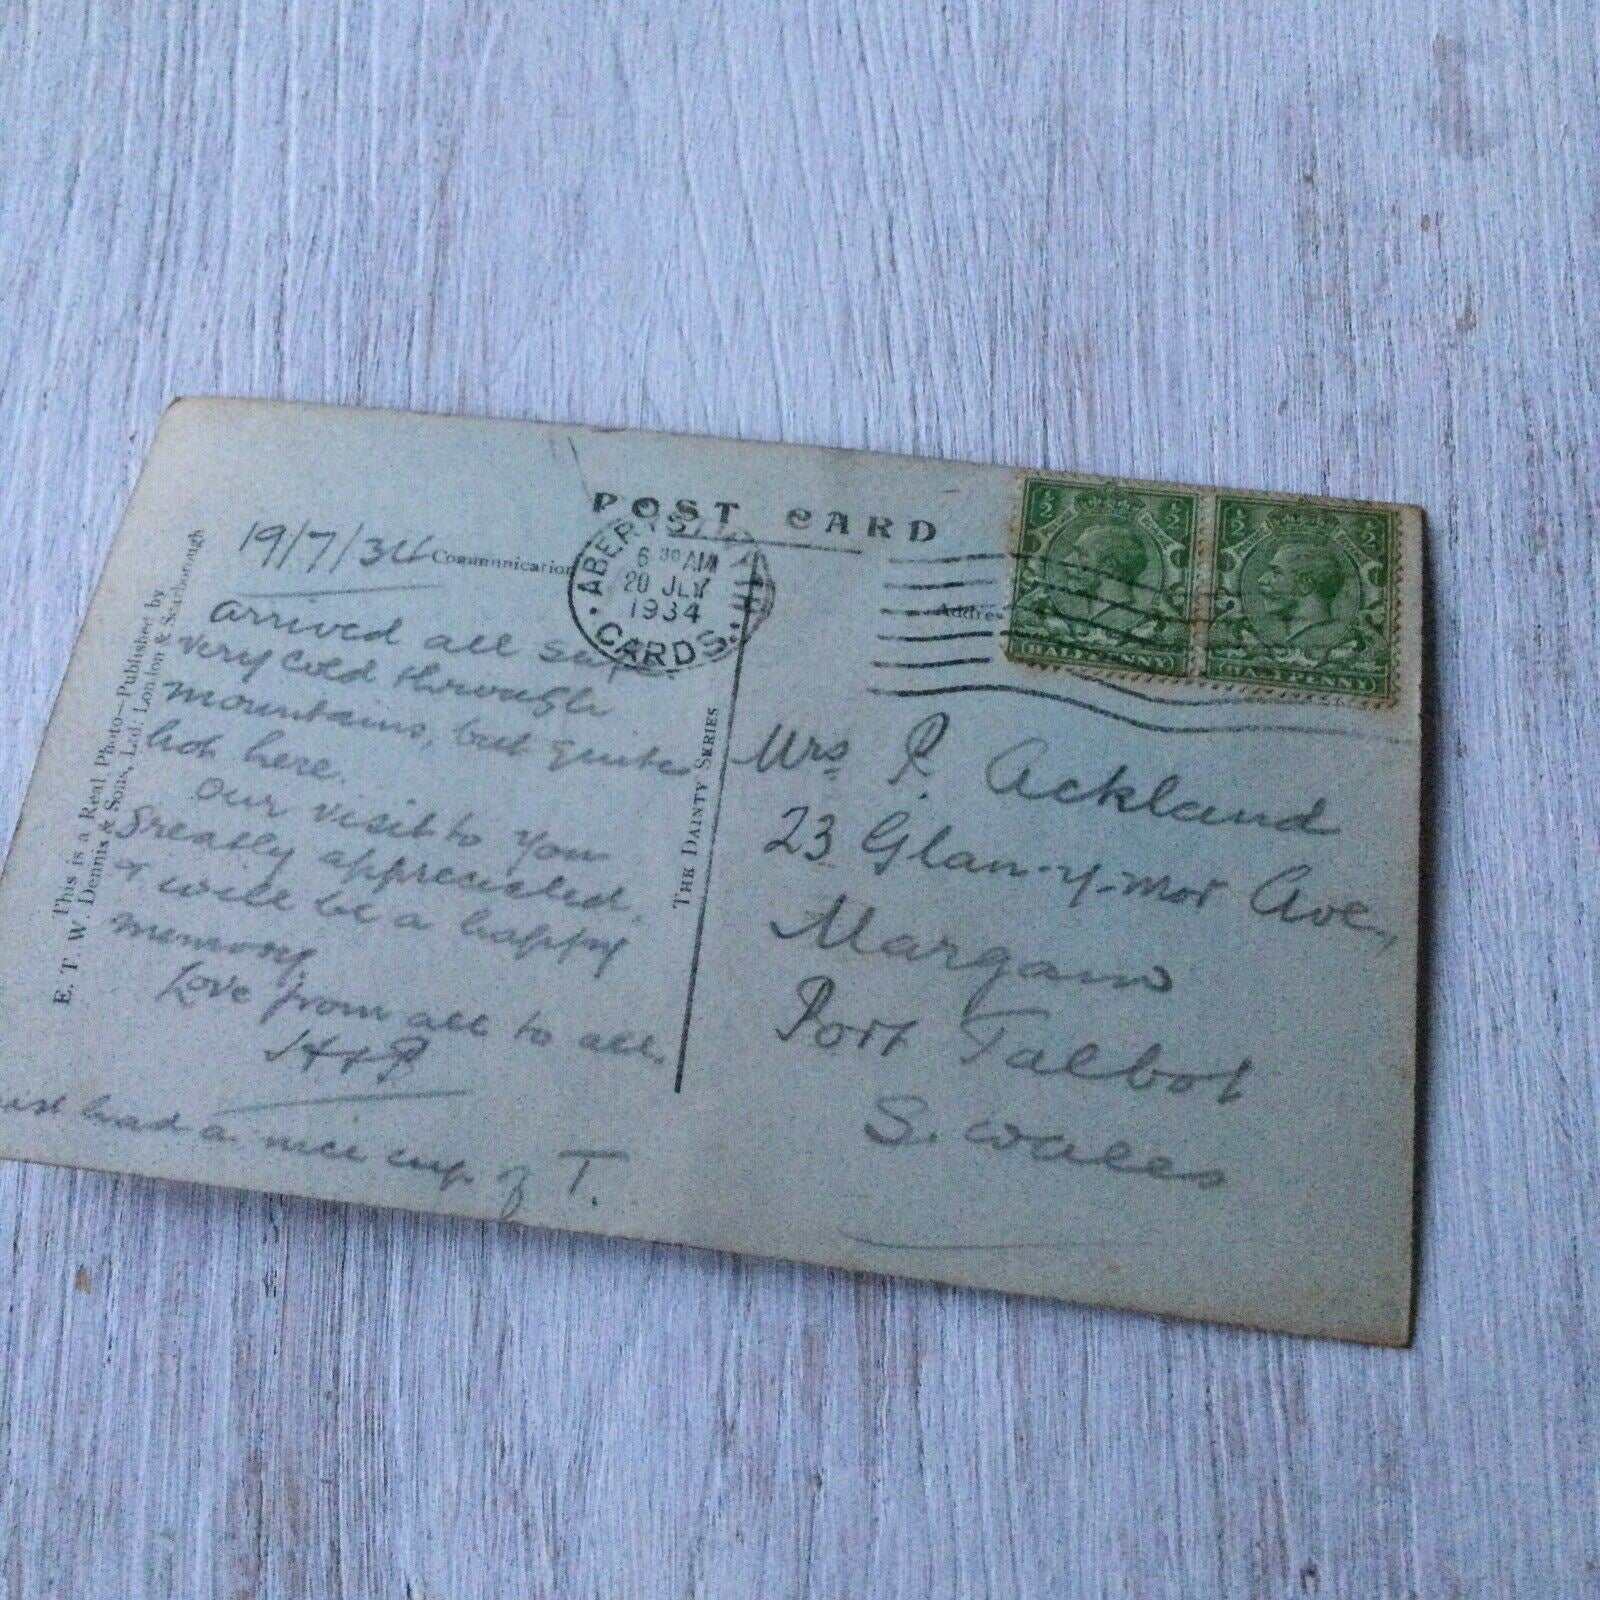 POST CARD
Communication
Address
19/7/34
arrived all safe
very cold through
mountains, but quite
hot here.
Our visit to you
greatly appreciated,
& will be a happy
memory.
Love from all to all.
H & P
had a nice cup of T.
This is a Real Photo—Published by
E. T. W. Dennis & Sons, Ltd. London & Scarborough
THE DAINTY SERIES
6 30 AM
20 JLY
1934
CARDS
½ ½
HALFPENNY
½ ½
HALFPENNY
Mrs P. Ackland
23 Glan-y-mor Ave,
Margam
Port Talbot
S. Wales